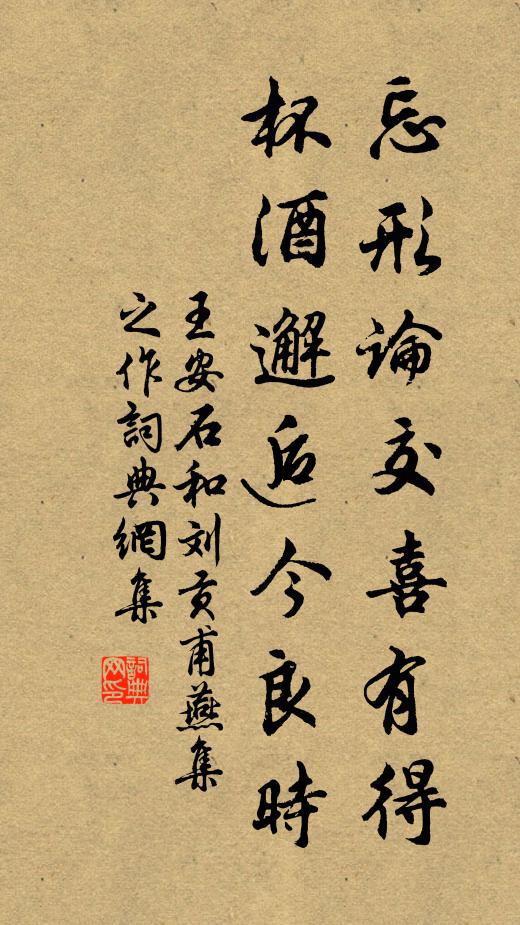 忘形論交喜有得
杯酒邂逅今良時
王安石和刘贡甫燕集
之作詞典網集
詞典
网印